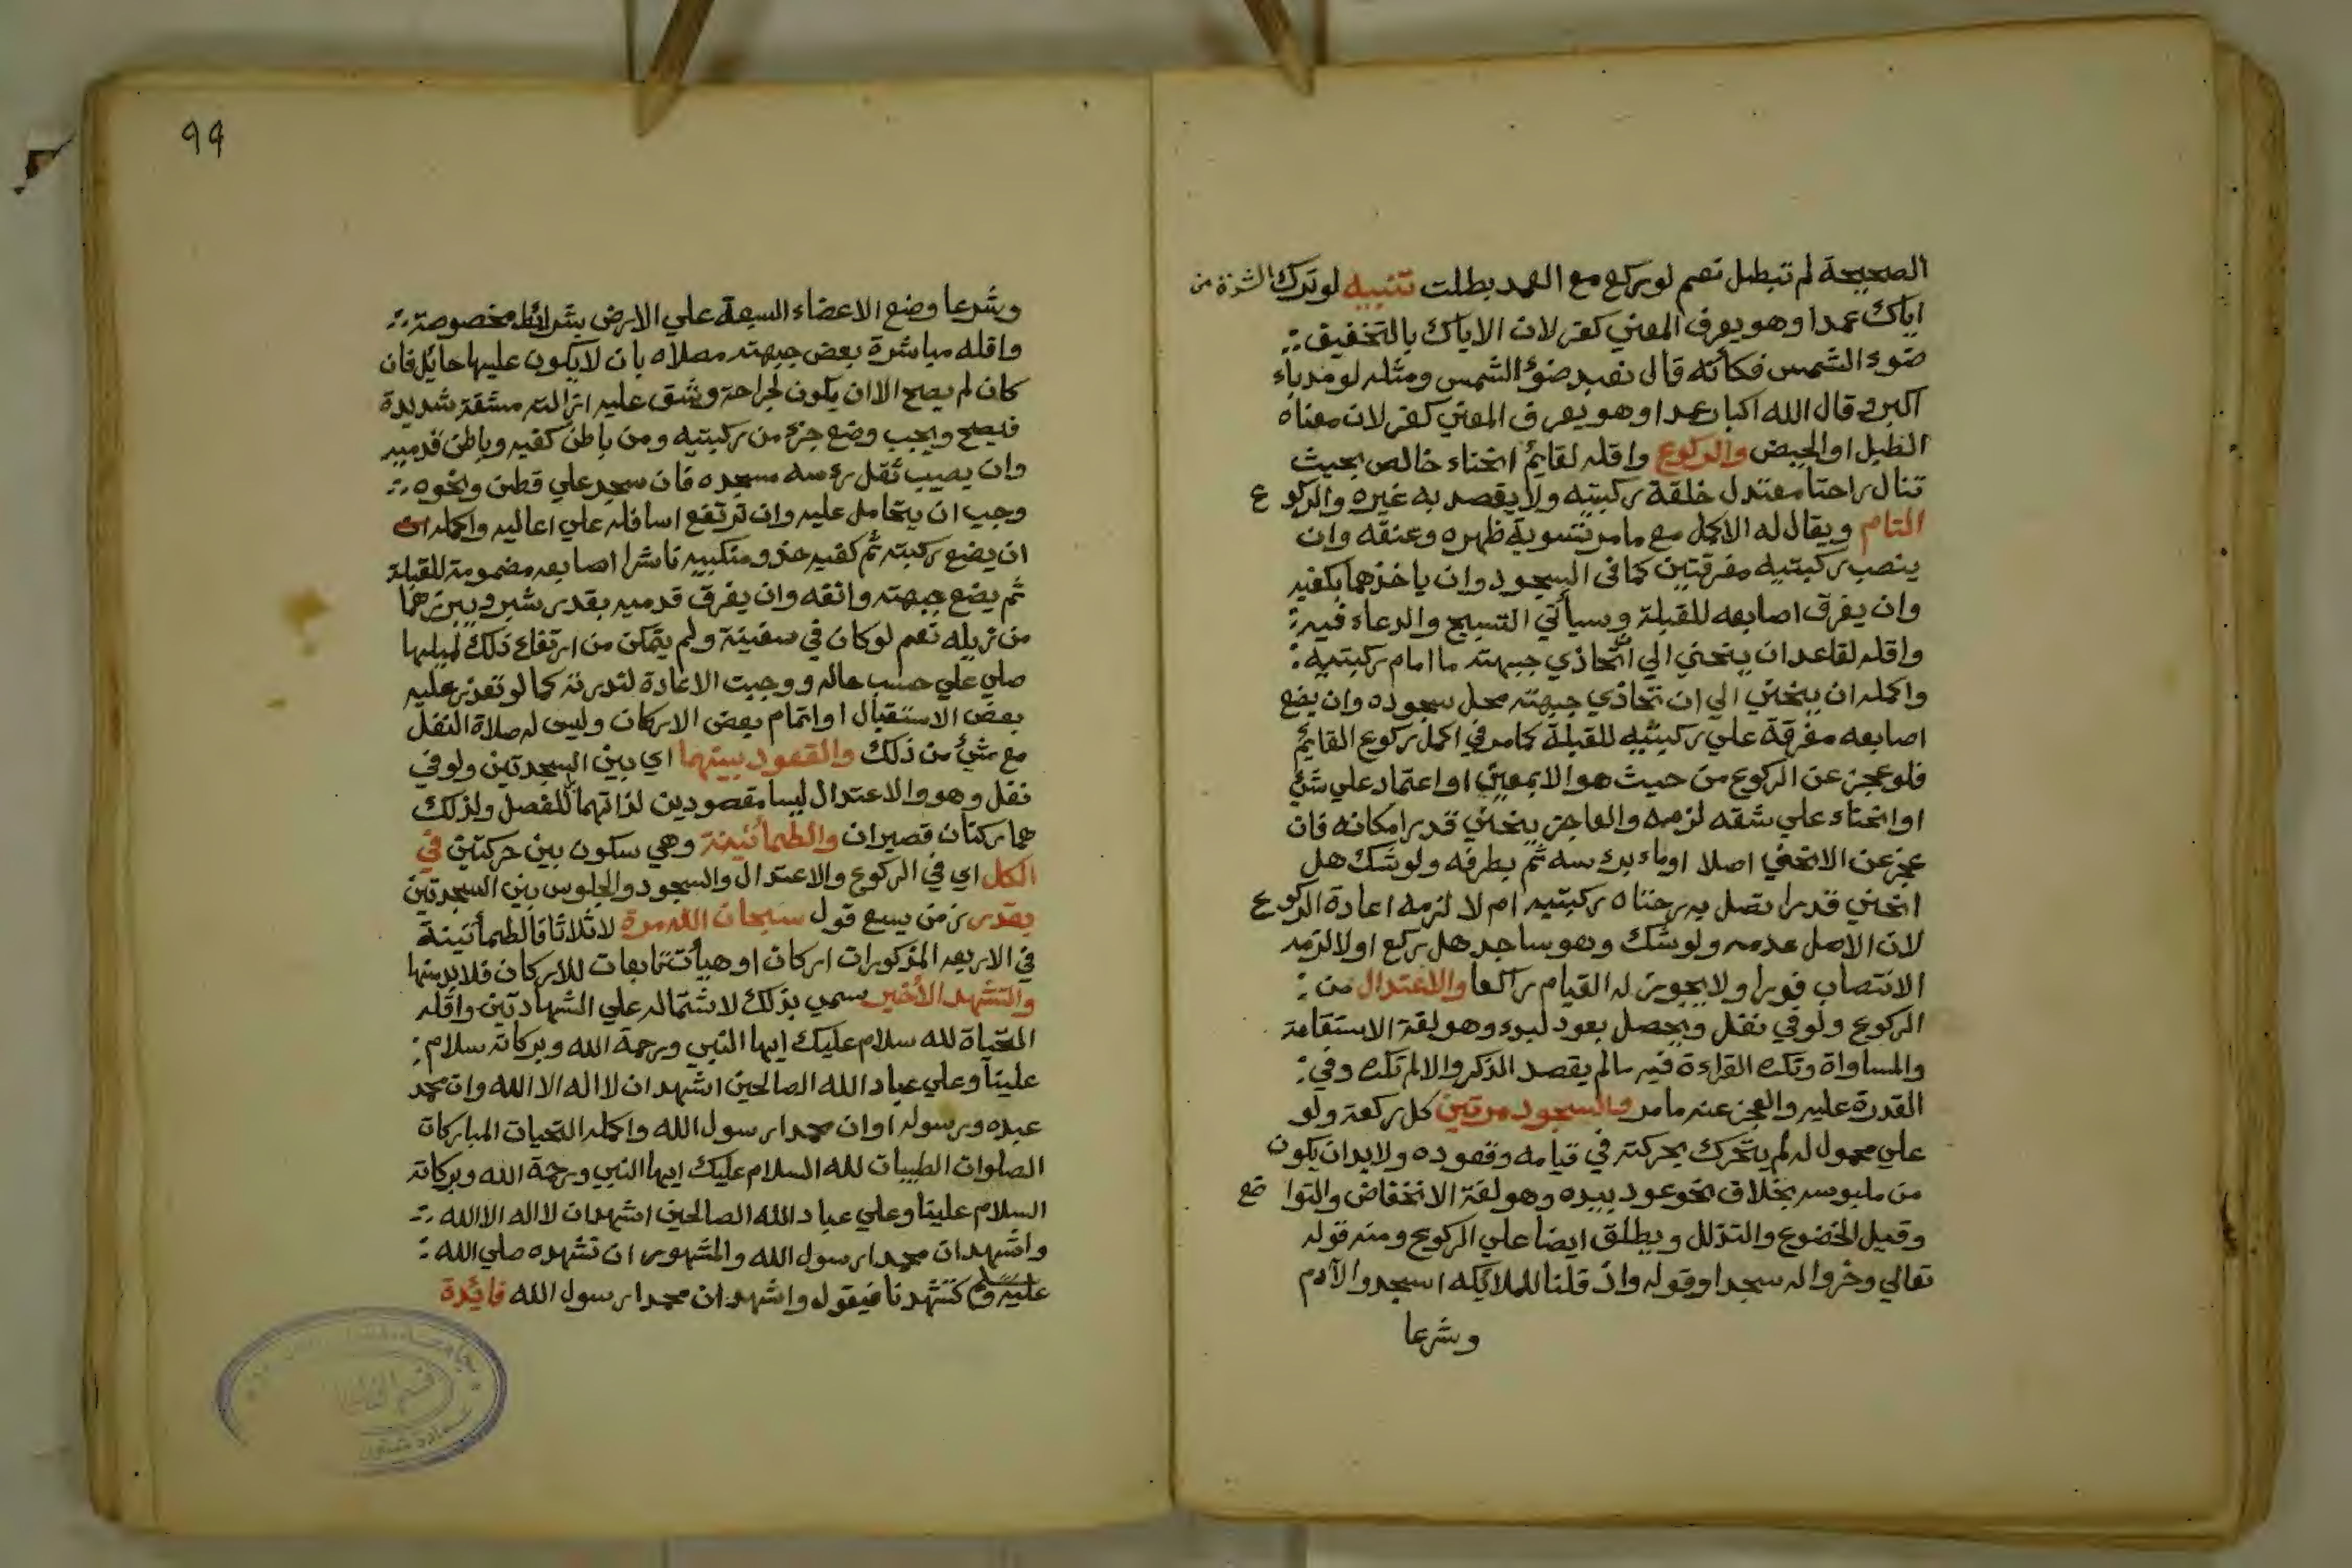 الصحيحة لم تبطل نعم لو ركع مع العمد بطلت تنبيه لو ترك الشدة من
اياك عمدا وهو يعرف المعني كفر لان الاياك بالتخفيف
ضوء الشمس فكأنه قال نعبد ضوء الشمس ومثله لو مد باء
اكبر وقال الله اكبار عمدا وهو يعرف المعني كفر لان معناه
الطبل او الحيض والركوع واقله لقايم انحناء خالص بحيث
تنال راحتا معتدل خلقة ركبتيه ولا يقصد به غيره والركوع
التام ويقال له الاكمل مع ما مر بتسوية ظهره وعنقه وان
ينصب ركبتيه مفرقتين كما في السجود وان ياخذهما بكفيه
وان يفرق اصابعه للقبلة وسيأتي التسبيح والدعاء فيه
واقله لقاعد ان ينحني الي ان تحاذي جبهته ما امام ركبتيه
واكمله ان ينحني الي ان تحاذي جبهته محل سجوده وان يضع
اصابعه مفرقة علي ركبتيه للقبلة كما مر في اكمل ركوع القايم
فلو عجز عن الركوع من حيث هو الا بمعين او اعتماد علي شئ
او انحناء علي شقه لزمه والعاجز ينحني قدر امكانه فان
عجز عن الانحني اصلا اوماء براسه ثم بطرفه ولو شك هل
انحني قدرا تصل به رحتاه ركبتيه ام لا لزمه اعادة الركوع
لان الاصل عدمه ولو شك وهو ساجد هل ركع اولا لزمه
الانتصاب فورا ولا يجوز له القيام راكعا والاعتدال من
الركوع ولو في نفل ويحصل بعود لبدء وهو لغة الاستقامة
والمساواة وتكره القراءة فيه ما لم يقصد الذكر والا لم تكره وفي
القدرة عليه والعجز عنه ما مر والسجود مرتين كل ركعة ولو
علي محمول له لم يتحرك بحركته في قيامه وقعوده ولا بد ان يكون
من ملبوسه بخلاف نحو عود بيده وهو لغة الانخفاض والتواضع
وقيل الخضوع والتذلل ويطلق ايضا علي الركوع ومنه قوله
تعالي وخروا له سجدا وقوله واذ قلنا للملايكه اسجدوا لآدم
وشرعا
٩٩
وشرعا وضع الاعضاء السبعة علي الارض بشرائط مخصوصة
واقله مباشرة بعض جبهته مصلاه بان لا يكون عليها حايل فان
كان لم يصح الا ان يكون لجراحة وشق عليه ازالته مشقة شديدة
فيصح ويجب وضع جزء من ركبتيه ومن باطن كفيه وباطن قدميه
وان يصيب ثقل رءسه مسجده فان سجد علي قطن ونحوه
وجب ان يتحامل عليه وان ترتفع اسافله علي اعاليه واكمله ان
ان يضع ركبته ثم كفيه حذو منكبيه ناشرا اصابعه مضمومة للقبلة
ثم يضع جبهته وانفه وان يفرق قدميه بقدر شبر ويبرزهما
من ذيله نعم لو كان في سفينة ولم يتمكن من ارتفاع ذلك لميلها
صلي علي حسب حاله ووجبت الاعادة لندرته كما لو تعذر عليه
بعض الاستقبال او اتمام بعض الاركان وليس له صلاة النفل
مع شئ من ذلك والقعود بينهما اي بين السجدتين ولو في
نفل وهو والاعتدال ليسا مقصودين لذاتهما للفصل ولذلك
هما ركنان قصيران والطمأنينة وهي سكون بين حركتين في
الكل اي في الركوع والاعتدال والسجود والجلوس بين السجدتين
بقدر زمن يسع قول سبحان الله مرة لا ثلاثا فالطمأنينة
في الاربعه المذكورات اركان او هيأت تابعات للاركان فلا بد منها
والتشهد الأخير سمي بذلك لاشتماله علي الشهادتين واقله
التحياة لله سلام عليك ايها النبي ورحمة الله وبركاته سلام
علينا وعلي عباد الله الصالحين اشهد ان لا اله الا الله وان محمد
عبده ورسوله او ان محمدا رسول الله واكمله التحيات المباركات
الصلوات الطيبات لله السلام عليك ايها النبي ورحمة الله وبركاته
السلام علينا وعلي عباد الله الصالحين اشهد ان لا اله الا الله
واشهد ان محمدا رسول الله والمشهور ان تشهده صلي الله
عليه وسلم كتشهدنا فيقول واشهد ان محمدا رسول الله فائدة